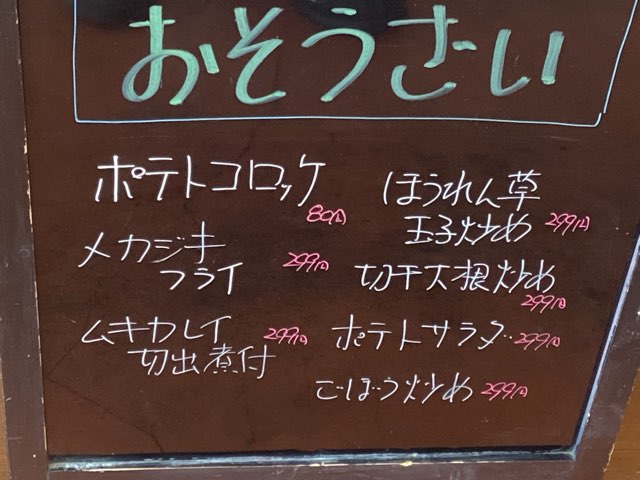 おそうざい
ポテトコロッケ
80円
メカジキ
フライ
299円
ムキカレイ
切出煮付
299円
ほうれん草
玉子炒め
299円
切干大根炒め
299円
ポテトサラダ
299円
ごぼう炒め
299円